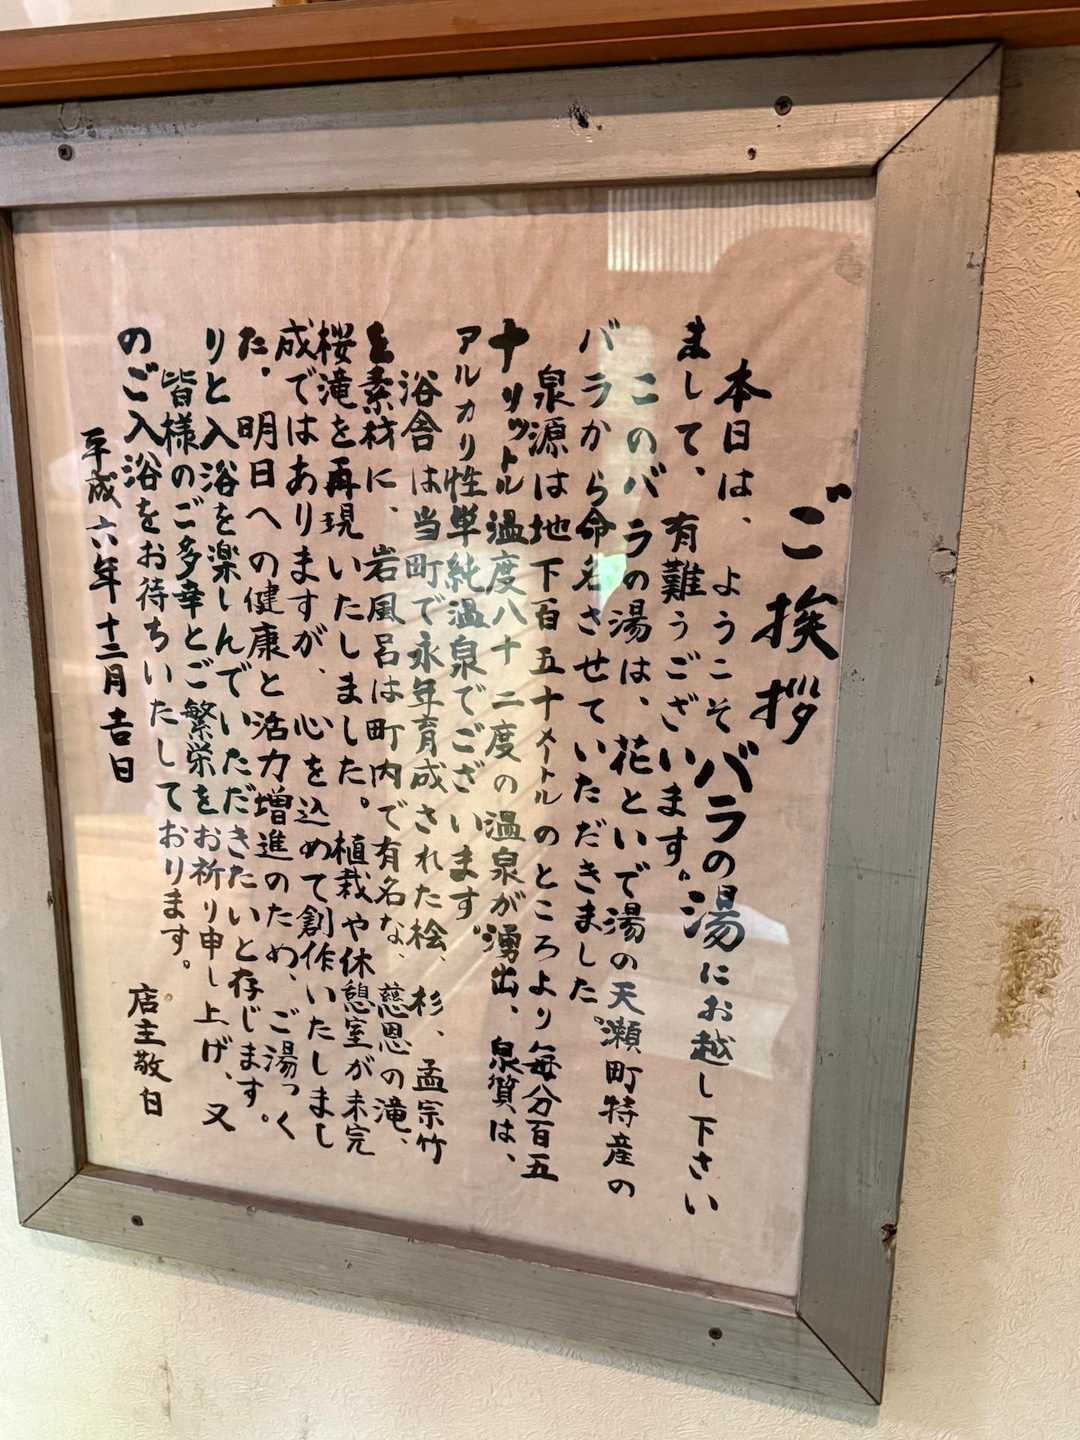 ご挨拶
本日は、ようこそバラの湯にお越し下さい
まして、有難うございます。
このバラの湯は、花といで湯の天瀬町特産の
バラから命名させていただきました。
泉源は地下百五十メートルのところより毎分百五
十リットル温度八十二度の温泉が湧出、泉質は、
アルカリ性単純温泉でございます。
浴舎は当町で永年育成された桧、杉、孟宗竹
を素材に、岩風呂は町内で有名な、慈恩の滝、
桜滝を再現いたしました。植栽や休憩室が未完
成ではありますが、心を込めて創作いたしまし
た。明日への健康と活力増進のため、ご湯っく
りと入浴を楽しんでいただきたいと存じます。
皆様のご多幸とご繁栄をお祈り申し上げ、又
のご入浴をお待ちいたしております。
店主敬白
平成六年十二月吉日